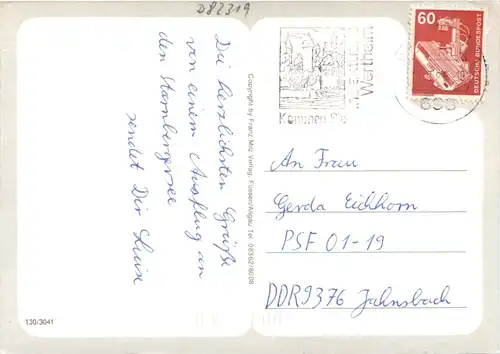 D82319
Die herzlichsten Grüße
von einem Ausflug an
den Starnbergersee
sendet Dir Luise
Copyright by Franz Milz Verlag, Füssen/Allgäu Tel. 08362/8008
Kommen Sie
Wertheim
60
DEUTSCHE BUNDESPOST
An Frau
Gerda Eichhorn
PSF 01-19
DDR9376 Jahnsbach
130/3041